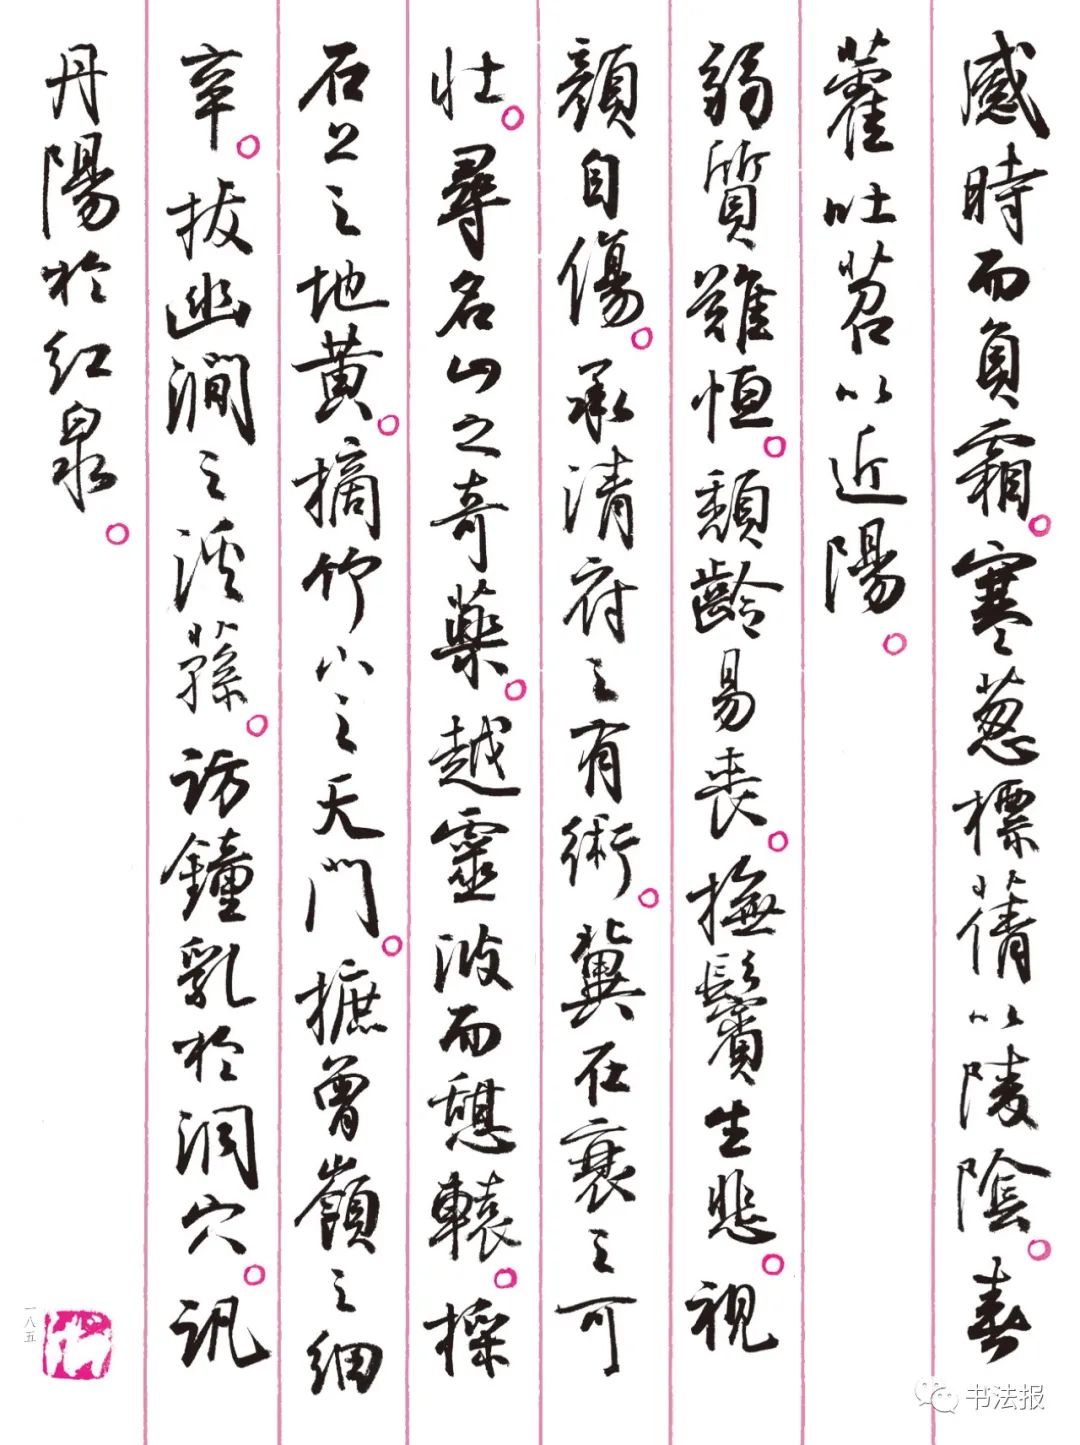 感時而負霜。寒葱摽蒨以陵陰。春
藿吐苕以近陽。
弱質難恒。頹齡易喪。撫鬢生悲。視
顏自傷。承清府之有術。冀在衰之可
壯。尋名山之奇藥。越靈波而憩轅。採
石上之地黃。摘竹下之天門。摭曾嶺之細
辛。拔幽澗之溪蓀。訪鐘乳於洞穴。訊
丹陽於紅泉。
一八五
书法报